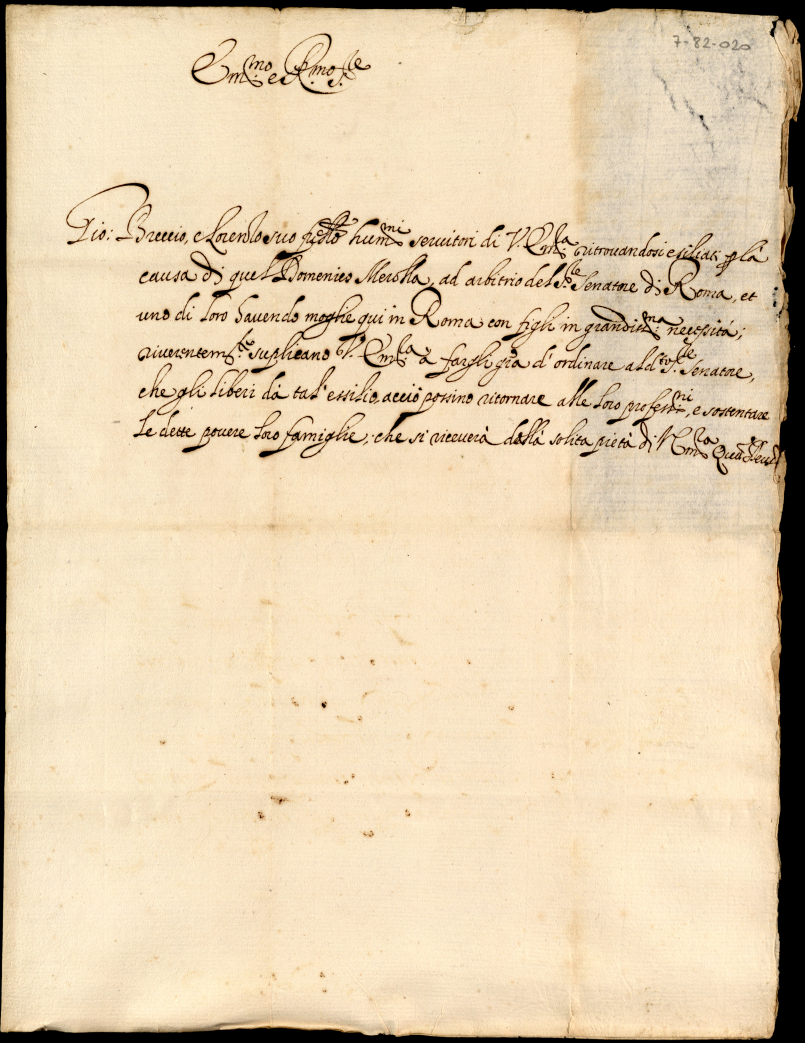 7-82-020
Em.mo e R.mo S.re
Gio: Breccio, e Lorenzo suo hum.mi seruitori di V. Em.za ritrouandosi esiliati p la
causa di quel Domenico Merolla, ad arbitrio del S.re Senatore di Roma, et
uno di loro hauendo moglie qui in Roma con figli in grandis.ma necessità;
riuerentem.te suplicano V. Em.za à fargli gra d'ordinare al d.to S.re Senatore,
che gli liberi dà tal'essilio, acciò possino ritornare alle loro profess.ni, e sostentare
le dette pouere loro famiglie, che si riceuerà dalla solita pietà di V. Em.za